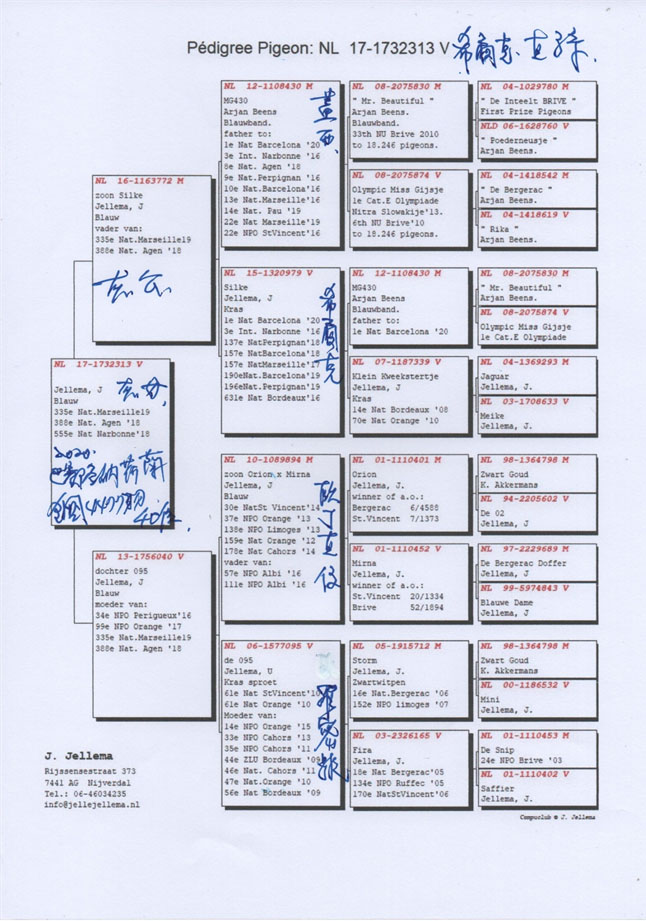 Pédigree Pigeon: NL 17-1732313 V
NL 17-1732313 V
Jellema, J
Blauw
335e Nat.Marseille19
388e Nat. Agen '18
555e Nat Narbonne'18
2020.
NL 16-1163772 M
zoon Silke
Jellema, J
Blauw
vader van:
335e Nat.Marseille19
388e Nat. Agen '18
NL 13-1756040 V
dochter 095
Jellema, J
Blauw
moeder van:
34e NPO Perigueux'16
99e NPO Orange '17
335e Nat.Marseille19
388e Nat. Agen '18
NL 12-1108430 M
MG430
Arjan Beens
Blauwband.
father to:
1e Nat Barcelona '20
3e Int. Narbonne '16
8e Nat. Agen '18
9e Nat.Perpignan '16
10e Nat.Barcelona'16
13e Nat.Marseille'16
14e Nat. Pau '19
22e Nat Marseille'19
22e NPO StVincent'16
NL 15-1320979 V
Silke
Jellema, J
Kras
1e Nat Barcelona '20
3e Int. Narbonne '16
137e NatPerpignan'18
157e NatBarcelona'18
157e NatMarseille'17
190eNat.Barcelona'19
196eNat.Perpignan'19
631e Nat Bordeaux'16
希爾克
NL 10-1089894 M
zoon Orion x Mirna
Jellema, J
Blauw
30e NatSt Vincent'14
37e NPO Orange '13
138e NPO Limoges '13
159e Nat Orange '12
178e Nat Cahors '14
vader van:
57e NPO Albi '16
111e NPO Albi '16
NL 06-1577095 V
de 095
Jellema, U
Kras sproet
61e Nat StVincent'10
61e Nat Orange '10
Moeder van:
14e NPO Orange '15
33e NPO Cahors '13
35e NPO Cahors '11
44e ZLU Bordeaux '09
46e Nat. Cahors '11
47e Nat.Orange '10
56e Nat Bordeaux '09
NL 08-2075830 M
" Mr. Beautiful "
Arjan Beens.
Blauwband.
33th NU Brive 2010
to 18.246 pigeons.
NL 08-2075874 V
Olympic Miss Gijsje
1e Cat.E Olympiade
Nitra Slowakije'13.
6th NU Brive'10
to 18.246 pigeons.
NL 12-1108430 M
MG430
Arjan Beens
Blauwband.
father to:
1e Nat Barcelona '20
NL 07-1187339 V
Klein Kweekstertje
Jellema, J
Kras
14e Nat Bordeaux '08
70e Nat Orange '10
NL 01-1110401 M
Orion
Jellema, J.
winner of a.o.:
Bergerac 6/4588
St.Vincent 7/1373
NL 01-1110452 V
Mirna
Jellema, J.
winner of a.o.:
St.Vincent 20/1334
Brive 52/1894
NL 05-1915712 M
Storm
Jellema, J.
Zwartwitpen
16e Nat.Bergerac '06
152e NPO limoges '07
NL 03-2326165 V
Fira
Jellema, J.
18e Nat Bergerac'05
134e NPO Ruffec '05
170e NatStVincent'06
NL 04-1029780 M
" De Inteelt BRIVE "
First Prize Pigeons
NLD 06-1628760 V
" Poederneusje "
Arjan Beens.
NL 04-1418542 M
" De Bergerac "
Arjan Beens.
NL 04-1418619 V
" Rika "
Arjan Beens.
NL 08-2075830 M
" Mr. Beautiful "
Arjan Beens.
NL 08-2075874 V
Olympic Miss Gijsje
1e Cat.E Olympiade
NL 04-1369293 M
Jaguar
Jellema, J.
NL 03-1708633 V
Meike
Jellema, J.
NL 98-1364798 M
Zwart Goud
K. Akkermans
NL 94-2205602 V
De 02
Jellema, J
NL 97-2229689 M
De Bergerac Doffer
Jellema, J
NL 99-5974843 V
Blauwe Dame
Jellema, J
NL 98-1364798 M
Zwart Goud
K. Akkermans
NL 00-1186532 V
Mini
Jellema, J.
NL 01-1110453 M
De Snip
24e NPO Brive '03
NL 01-1110402 V
Saffier
Jellema, J.
J. Jellema
Rijssensestraat 373
7441 AG Nijverdal
Tel.: 06-46034235
info@jellejellema.nl
Compuclub © J. Jellema